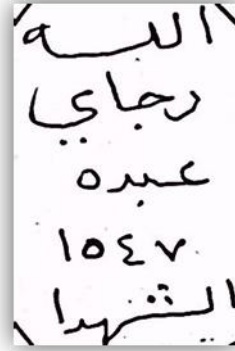 الله
رجاي
عبده
١٥٤٧
الشهدا